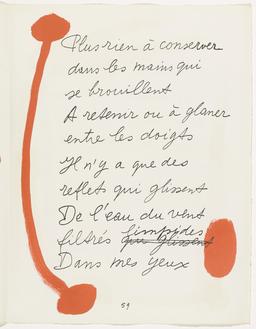 Plus rien à conserver
dans les mains qui
se brouillent
A retenir ou à glaner
entre les doigts
Il n'y a que des
reflets qui glissent
De l'eau du vent
filtrés limpides
que glissent
Dans mes yeux
59